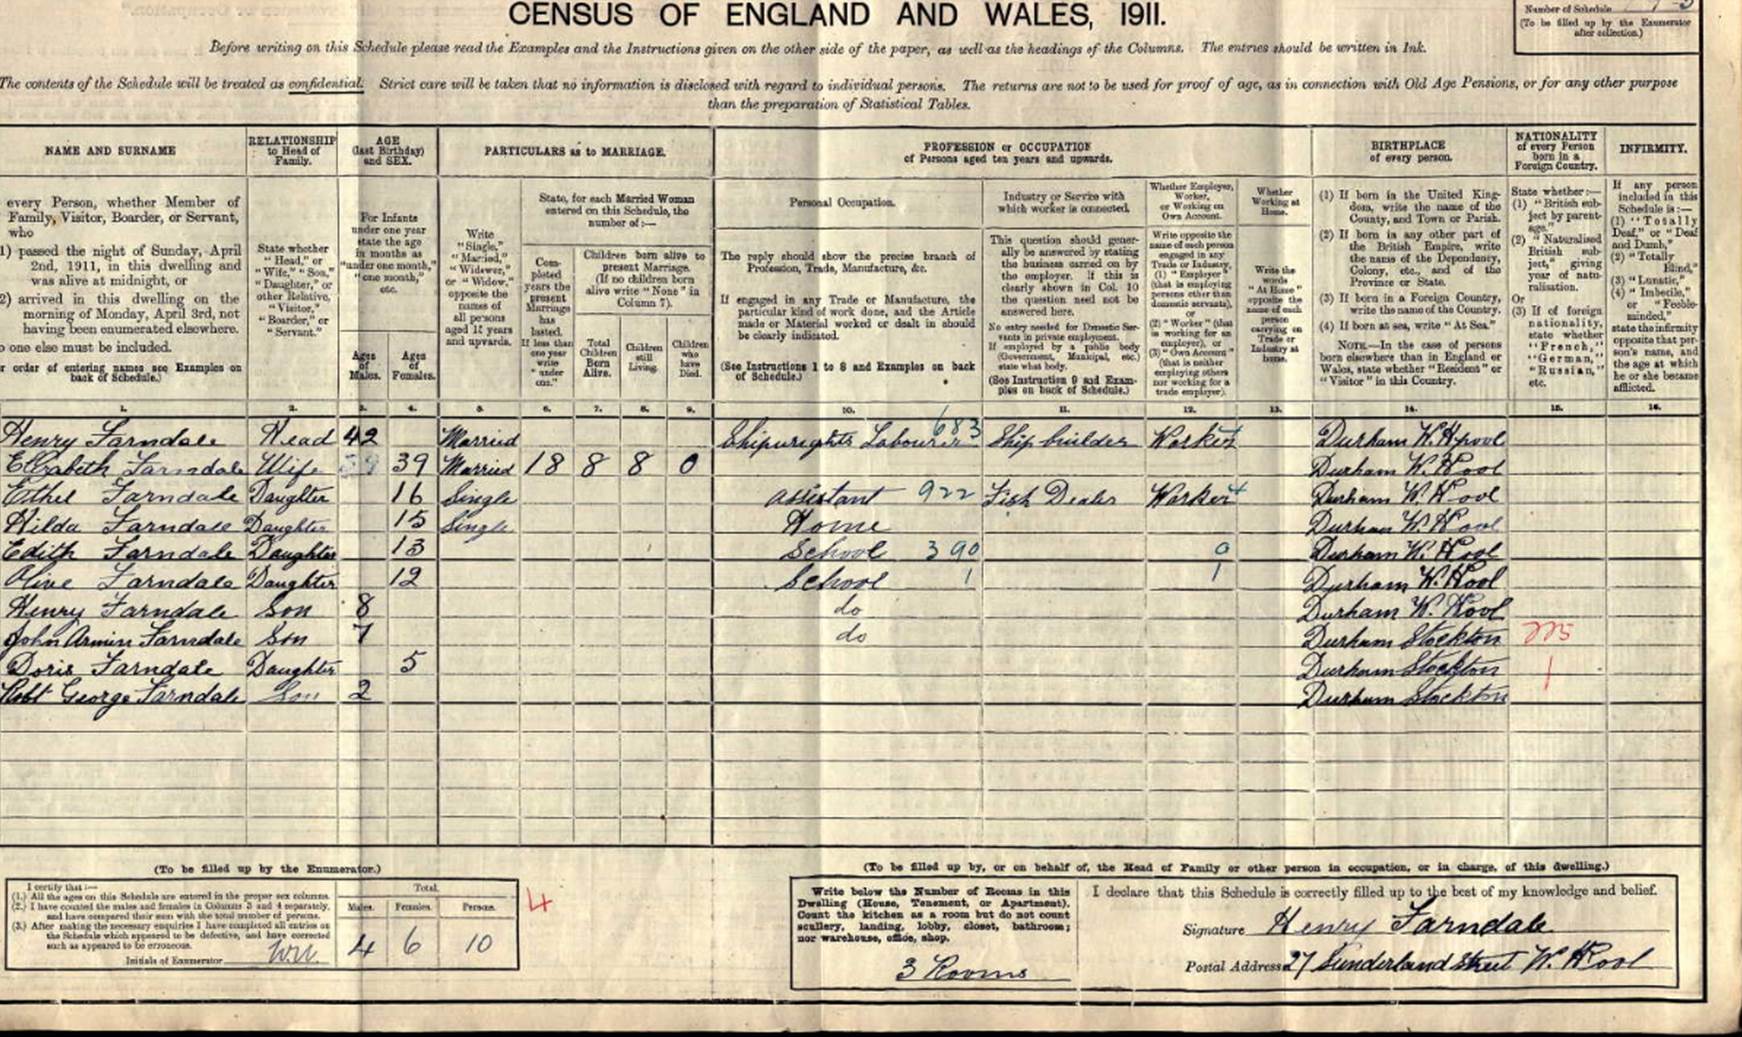 CENSUS OF ENGLAND AND WALES, 1911.
Number of Schedule
(To be filled up by the Enumerator
after collection.)
Before writing on this Schedule please read the Examples and the Instructions given on the other side of the paper, as well as the headings of the Columns. The entries should be written in Ink.
The contents of the Schedule will be treated as confidential. Strict care will be taken that no information is disclosed with regard to individual persons. The returns are not to be used for proof of age, as in connection with Old Age Pensions, or for any other purpose
than the preparation of Statistical Tables.
NAME AND SURNAME
every Person, whether Member of
Family, Visitor, Boarder, or Servant,
who
1) passed the night of Sunday, April
2nd, 1911, in this dwelling and
was alive at midnight, or
2) arrived in this dwelling on the
morning of Monday, April 3rd, not
having been enumerated elsewhere.
one else must be included.
order of entering names see Examples on
back of Schedule.)
RELATIONSHIP
to Head of
Family.
State whether
"Head," or
"Wife," "Son,"
"Daughter," or
other Relative,
"Visitor,"
"Boarder," or
"Servant."
AGE
(last Birthday)
and SEX.
For Infants
under one year
state the age
in months as
"under one month,"
"one month,"
etc.
Ages
of
Males.
Ages
of
Females.
PARTICULARS as to MARRIAGE.
Write
"Single,"
"Married,"
"Widower,"
or "Widow,"
opposite the
names of
all persons
aged 15 years
and upwards.
State, for each Married Woman
entered on this Schedule, the
number of:—
Completed
years the
present
Marriage
has
lasted.
If less than
one year
write
"under
one."
Children born alive to
present Marriage.
(If no children born
alive write "None" in
Column 7).
Total
Children
Born
Alive.
Children
still
Living.
Children
who
have
Died.
PROFESSION or OCCUPATION
of Persons aged ten years and upwards.
Personal Occupation.
The reply should show the precise branch of
Profession, Trade, Manufacture, &c.
If engaged in any Trade or Manufacture, the
particular kind of work done, and the Article
made or Material worked or dealt in should
be clearly indicated.
(See Instructions 1 to 8 and Examples on back
of Schedule.)
Industry or Service with
which worker is connected.
This question should gener-
ally be answered by stating
the business carried on by
the employer. If this is
clearly shown in Col. 10
the question need not be
answered here.
No entry needed for Domestic Ser-
vants in private employment.
If employed by a public body
(Government, Municipal, etc.)
state what body.
(See Instruction 9 and Exam-
ples on back of Schedule.)
Whether Employer,
Worker,
or Working on
Own Account.
Write opposite the
name of each person
engaged in any
Trade or Industry,
(1) "Employer"
(that is employing
persons other than
domestic servants),
or
(2) "Worker" (that
is working for an
employer), or
(3) "Own Account"
(that is neither
employing others
nor working for a
trade employer).
Whether
Working at
Home.
Write the
words
"At Home"
opposite the
name of each
person
carrying on
Trade or
Industry at
home.
BIRTHPLACE
of every person.
(1) If born in the United King-
dom, write the name of the
County, and Town or Parish.
(2) If born in any other part of
the British Empire, write
the name of the Dependency,
Colony, etc., and of the
Province or State.
(3) If born in a Foreign Country,
write the name of the Country.
(4) If born at sea, write "At Sea."
NOTE.—In the case of persons
born elsewhere than in England or
Wales, state whether "Resident" or
"Visitor" in this Country.
NATIONALITY
of every Person
born in a
Foreign Country.
State whether:—
(1) "British sub-
ject by parent-
age."
(2) "Naturalised
British sub-
ject," giving
year of natu-
ralisation.
Or
(3) If of foreign
nationality,
state whether
"French,"
"German,"
"Russian,"
etc.
INFIRMITY.
If any person
included in this
Schedule is:—
(1) "Totally
Deaf," or "Deaf
and Dumb,"
(2) "Totally
Blind,"
(3) "Lunatic,"
(4) "Imbecile,"
or "Feeble-
minded,"
state the infirmity
opposite that per-
son's name, and
the age at which
he or she became
afflicted.
1. 2. 3. 4. 5. 6. 7. 8. 9. 10. 11. 12. 13. 14. 15. 16.
Henry Farndale Head 42 Married Shipwrights Labourer 683 Ship builder Worker Durham W. H'pool
Elizabeth Farndale Wife 39 Married 18 8 8 0 Durham W. H'ool
Ethel Farndale Daughter 16 Single assistant 922 Fish Dealer Worker Durham W. H'ool
Hilda Farndale Daughter 15 Single Home Durham W. H'ool
Edith Farndale Daughter 13 School 390 0 Durham W. H'ool
Olive Farndale Daughter 12 School 1 1 Durham W. H'ool
Henry Farndale Son 8 do Durham W. H'ool
John Armin Farndale Son 7 do Durham Stockton 225
Doris Farndale Daughter 5 Durham Stockton
Robt George Farndale Son 2 Durham Stockton
(To be filled up by the Enumerator.)
I certify that:—
(1.) All the ages on this Schedule are entered in the proper sex columns.
(2.) I have counted the males and females in Columns 3 and 4 separately,
and have compared their sum with the total number of persons.
(3.) After making the necessary enquiries I have completed all entries on
the Schedule which appeared to be defective, and have corrected
such as appeared to be erroneous.
Initials of Enumerator
Total.
Males. Females. Persons.
4 6 10
4
(To be filled up by, or on behalf of, the Head of Family or other person in occupation, or in charge, of this dwelling.)
Write below the Number of Rooms in this
Dwelling (House, Tenement, or Apartment).
Count the kitchen as a room but do not count
scullery, landing, lobby, closet, bathroom;
nor warehouse, office, shop.
3 Rooms
I declare that this Schedule is correctly filled up to the best of my knowledge and belief.
Signature Henry Farndale
Postal Address 27 Sunderland Street W. H'Pool